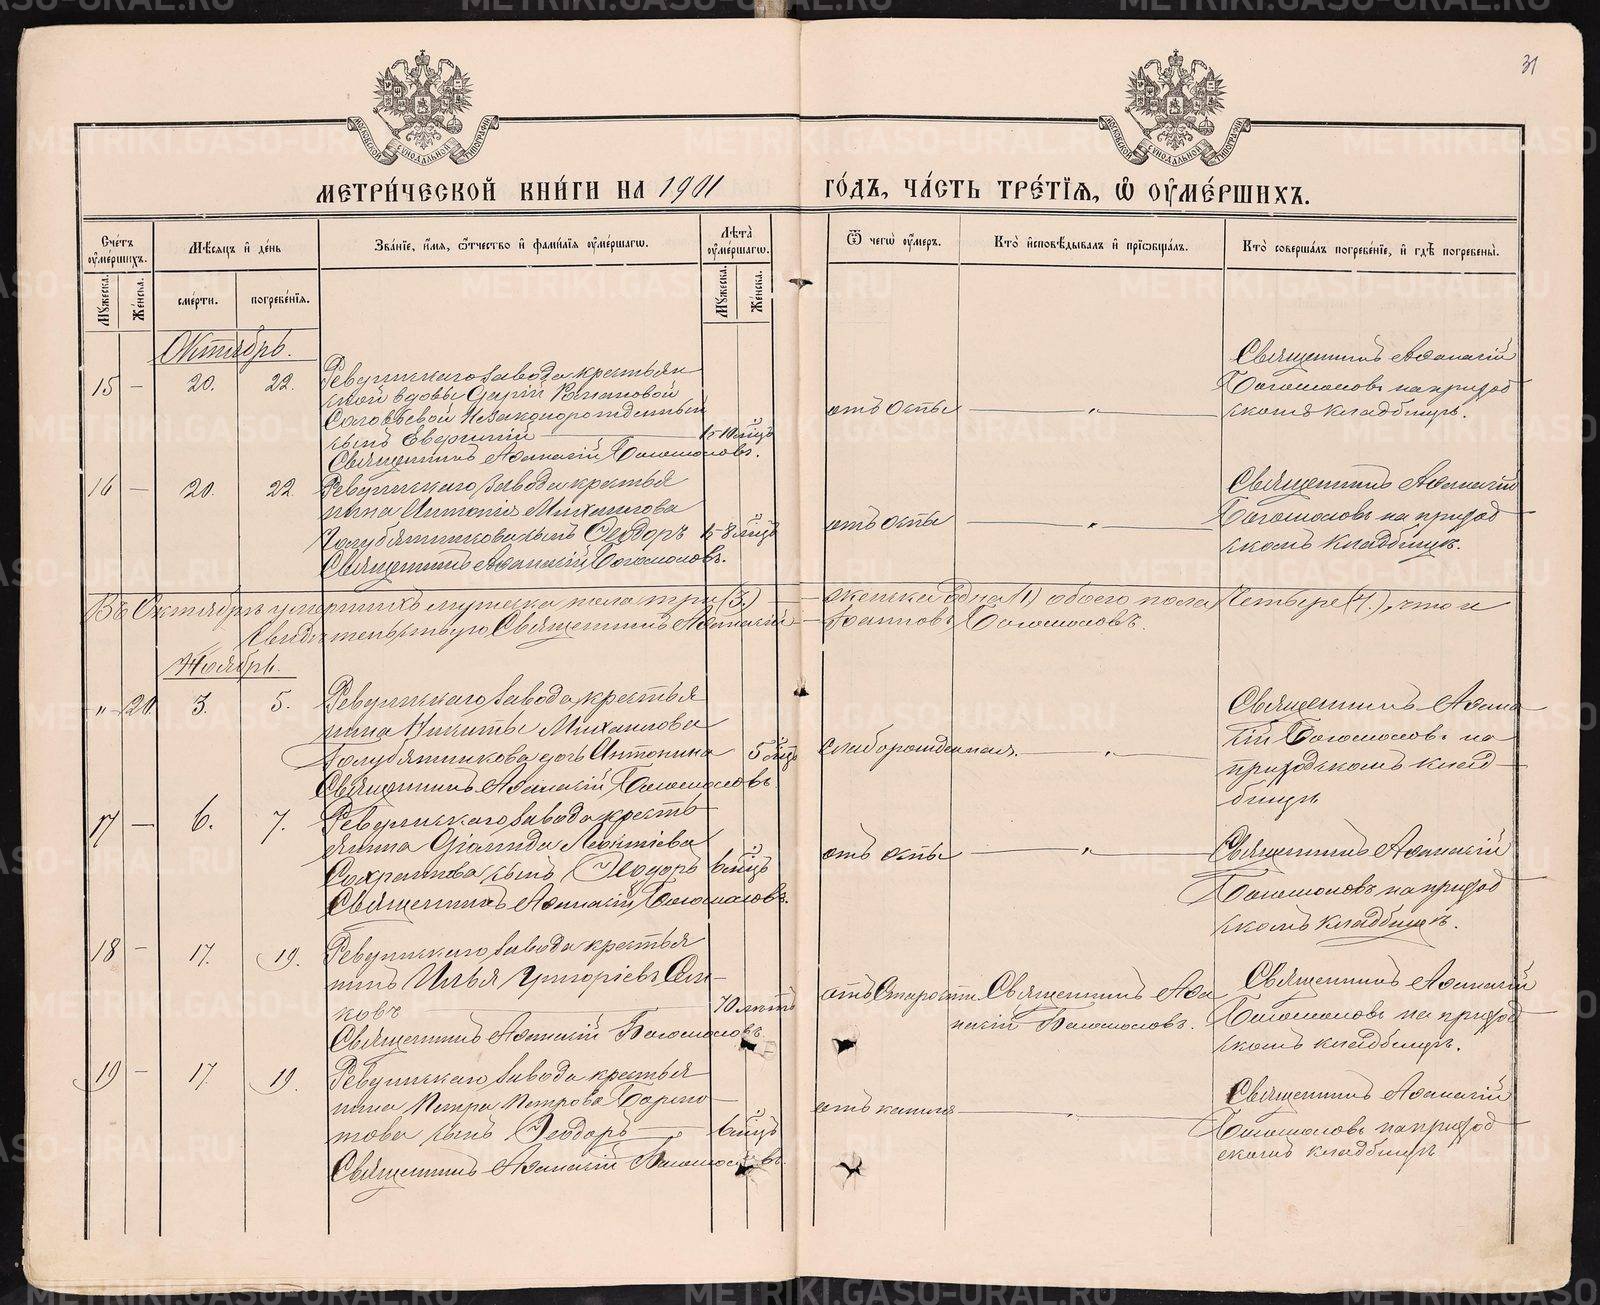 31
МОСКОВСКОЙ СѴНОДАЛЬНОЙ ТИПОГРАФІИ
МОСКОВСКОЙ СѴНОДАЛЬНОЙ ТИПОГРАФІИ
МЕТРИ́ЧЕСКОЙ КНИ́ГИ НА 1901 ГО́ДЪ, ЧА́СТЬ ТРЕ́ТІѦ, Ѡ҆ ОУ҆МЕ́РШИХЪ.
Сче́тъ оу҆ме́ршихъ.
Мꙋ́жеска.
Же́нска.
Мѣ́сяцъ и҆ де́нь
сме́рти.
погребе́нїѧ.
Зва́нїе, и҆́мѧ, ѻ҆́тчество и҆ фами́лїѧ оу҆ме́ршагѡ.
Лѣ́та оу҆ме́ршагѡ.
Мꙋ́жеска.
Же́нска.
Ѿ чегѡ̀ оу҆́меръ.
Кто̀ и҆сповѣ́дывалъ и҆ прїѡбща́лъ.
Кто̀ соверша́лъ погребе́нїе, и҆ гдѣ̀ погребены̀.
Октябрь.
15 — 20. 22.
Ревдинскаго завода крестьян
ской вдовы Дарьи
Соловьевой Незаконнорожденный
сынъ Евгений — 10 м-цъ
Священникъ Аѳанасій Богомоловъ.
отъ Оспы — " —
Священникъ Аѳанасій
Богомоловъ на приход
скомъ кладбищѣ.
16 — 20. 22
Ревдинскаго завода крестья
нина Антонія Михаилова
Голубятникова сынъ Ѳеодоръ 8 м-цъ
Священникъ Аѳанасій Богомоловъ.
отъ Оспы — " —
Священникъ Аѳанасій
Богомоловъ на приход
скомъ Кладбищѣ.
Въ Октябрѣ умершихъ мужска пола три (3.) — женска одна (1) обоего пола Четыре (4.), что и
свидѣтельствую Священникъ Аѳанасій — Іоанновъ Богомоловъ.
Ноябрь.
" 20. 3. 5.
Ревдинскаго завода крестья
нина Никиты Михаилова
Голубятникова дочь Антонина 5 м-цъ
Священникъ Аѳанасій Богомоловъ
Слаборожденная. — " —
Священникъ Аѳана
сій Богомоловъ на
приходскомъ клад
бищѣ
17 — 6. 7.
Ревдинскаго завода кресть
янина Леонтіева
сынъ Ѳеодоръ 6 м-цъ
Священникъ Аѳанасій Богомоловъ.
отъ оспы — " —
Священникъ Аѳанасій
Богомоловъ на приход
скомъ кладбищѣ.
18 — 17. 19.
Ревдинскаго завода крестья
нинъ Илья Григоріевъ
ковъ — 70 лѣтъ
Священникъ Аѳанасій Богомоловъ.
отъ Старости
Священникъ Аѳа
насій Богомоловъ.
Священникъ Аѳанасій
Богомоловъ на приход
скомъ кладбищѣ.
19 — 17. 19.
Ревдинскаго завода крестья
нина Петра Петрова
това сынъ Ѳеодоръ — 6 м-цъ
Священникъ Аѳанасій Богомоловъ.
отъ кашля — " —
Священникъ Аѳанасій
Богомоловъ на приход
скомъ кладбищѣ
METRIKI.GASO-URAL.RU